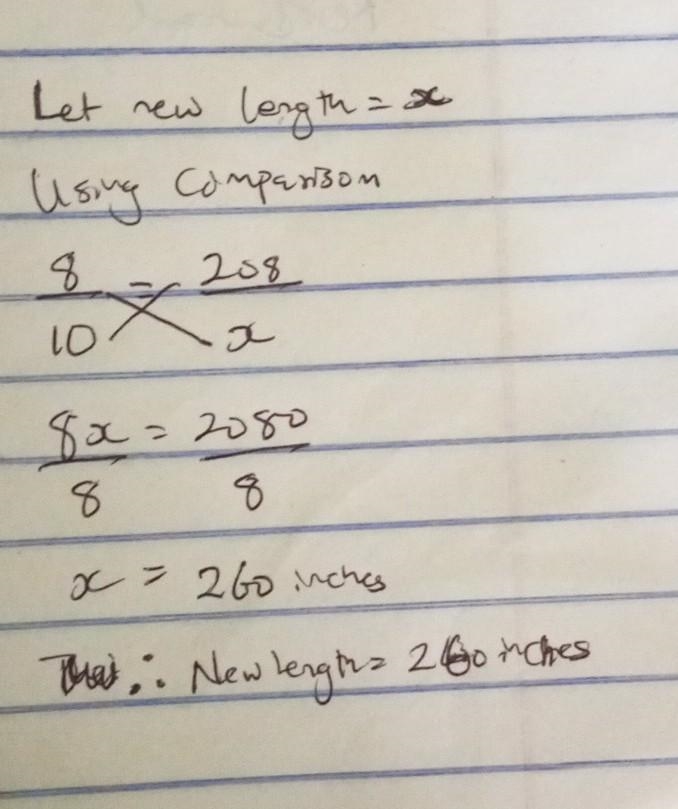 Let new length = x
Using Comparison
8/10 = 208/x
8x/8 = 2080/8
x = 260 inches
∴ New length = 260 inches